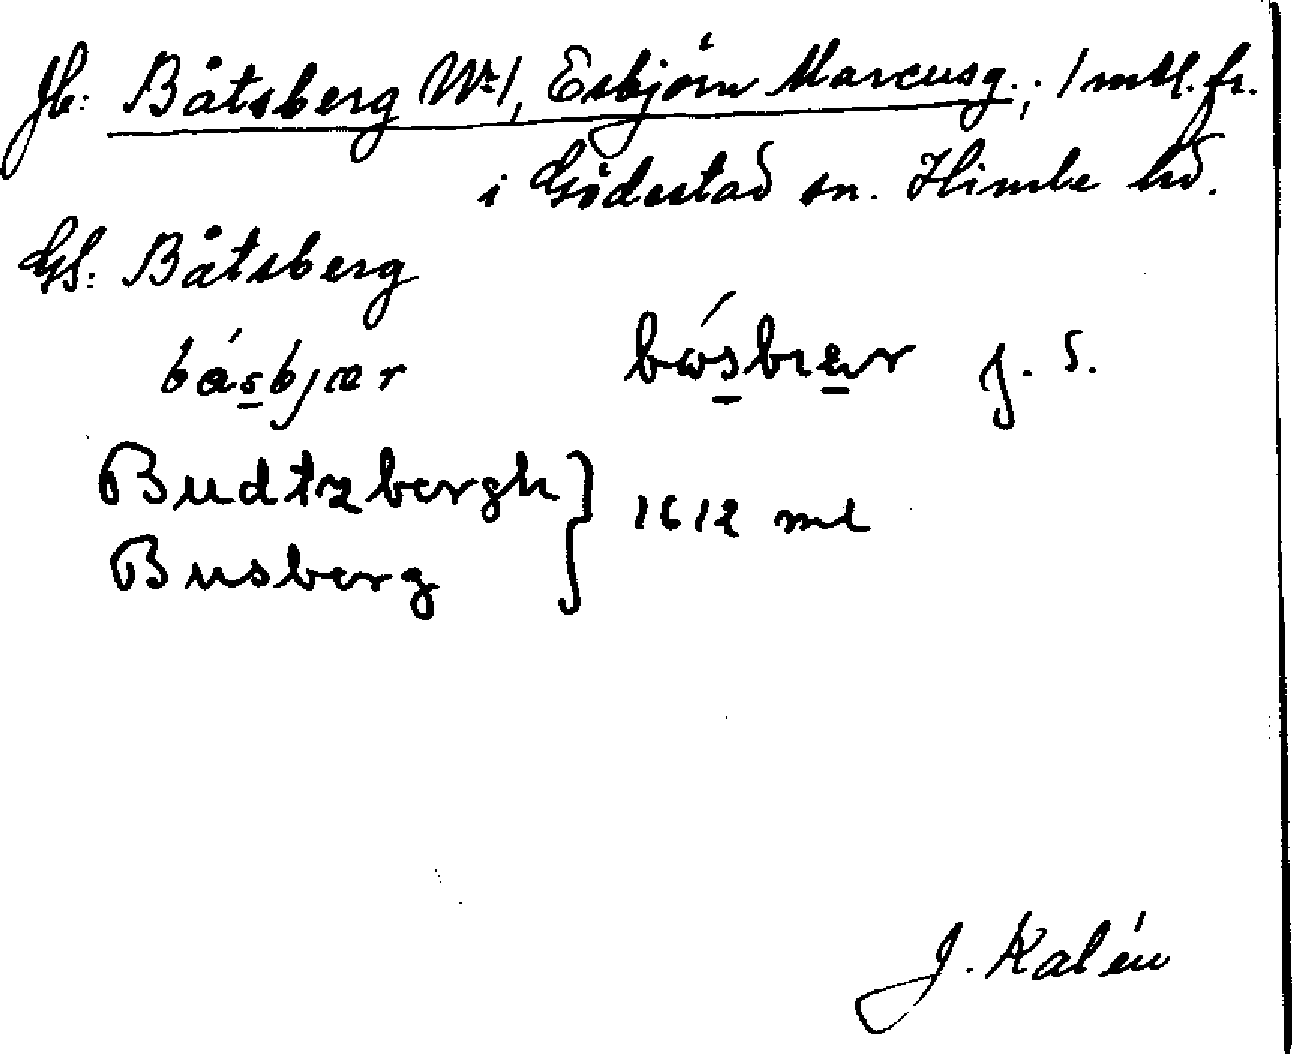 Jb: Båtsberg Nr 1, Esbjörn Marcusg.; 1 mtl. fr.
i Gödestad sn. Himle hd.
Gs: Båtsberg
básbjær bósbıær f. s.
Budtzbergh
Busberg } 1612 ml
J. Kalén